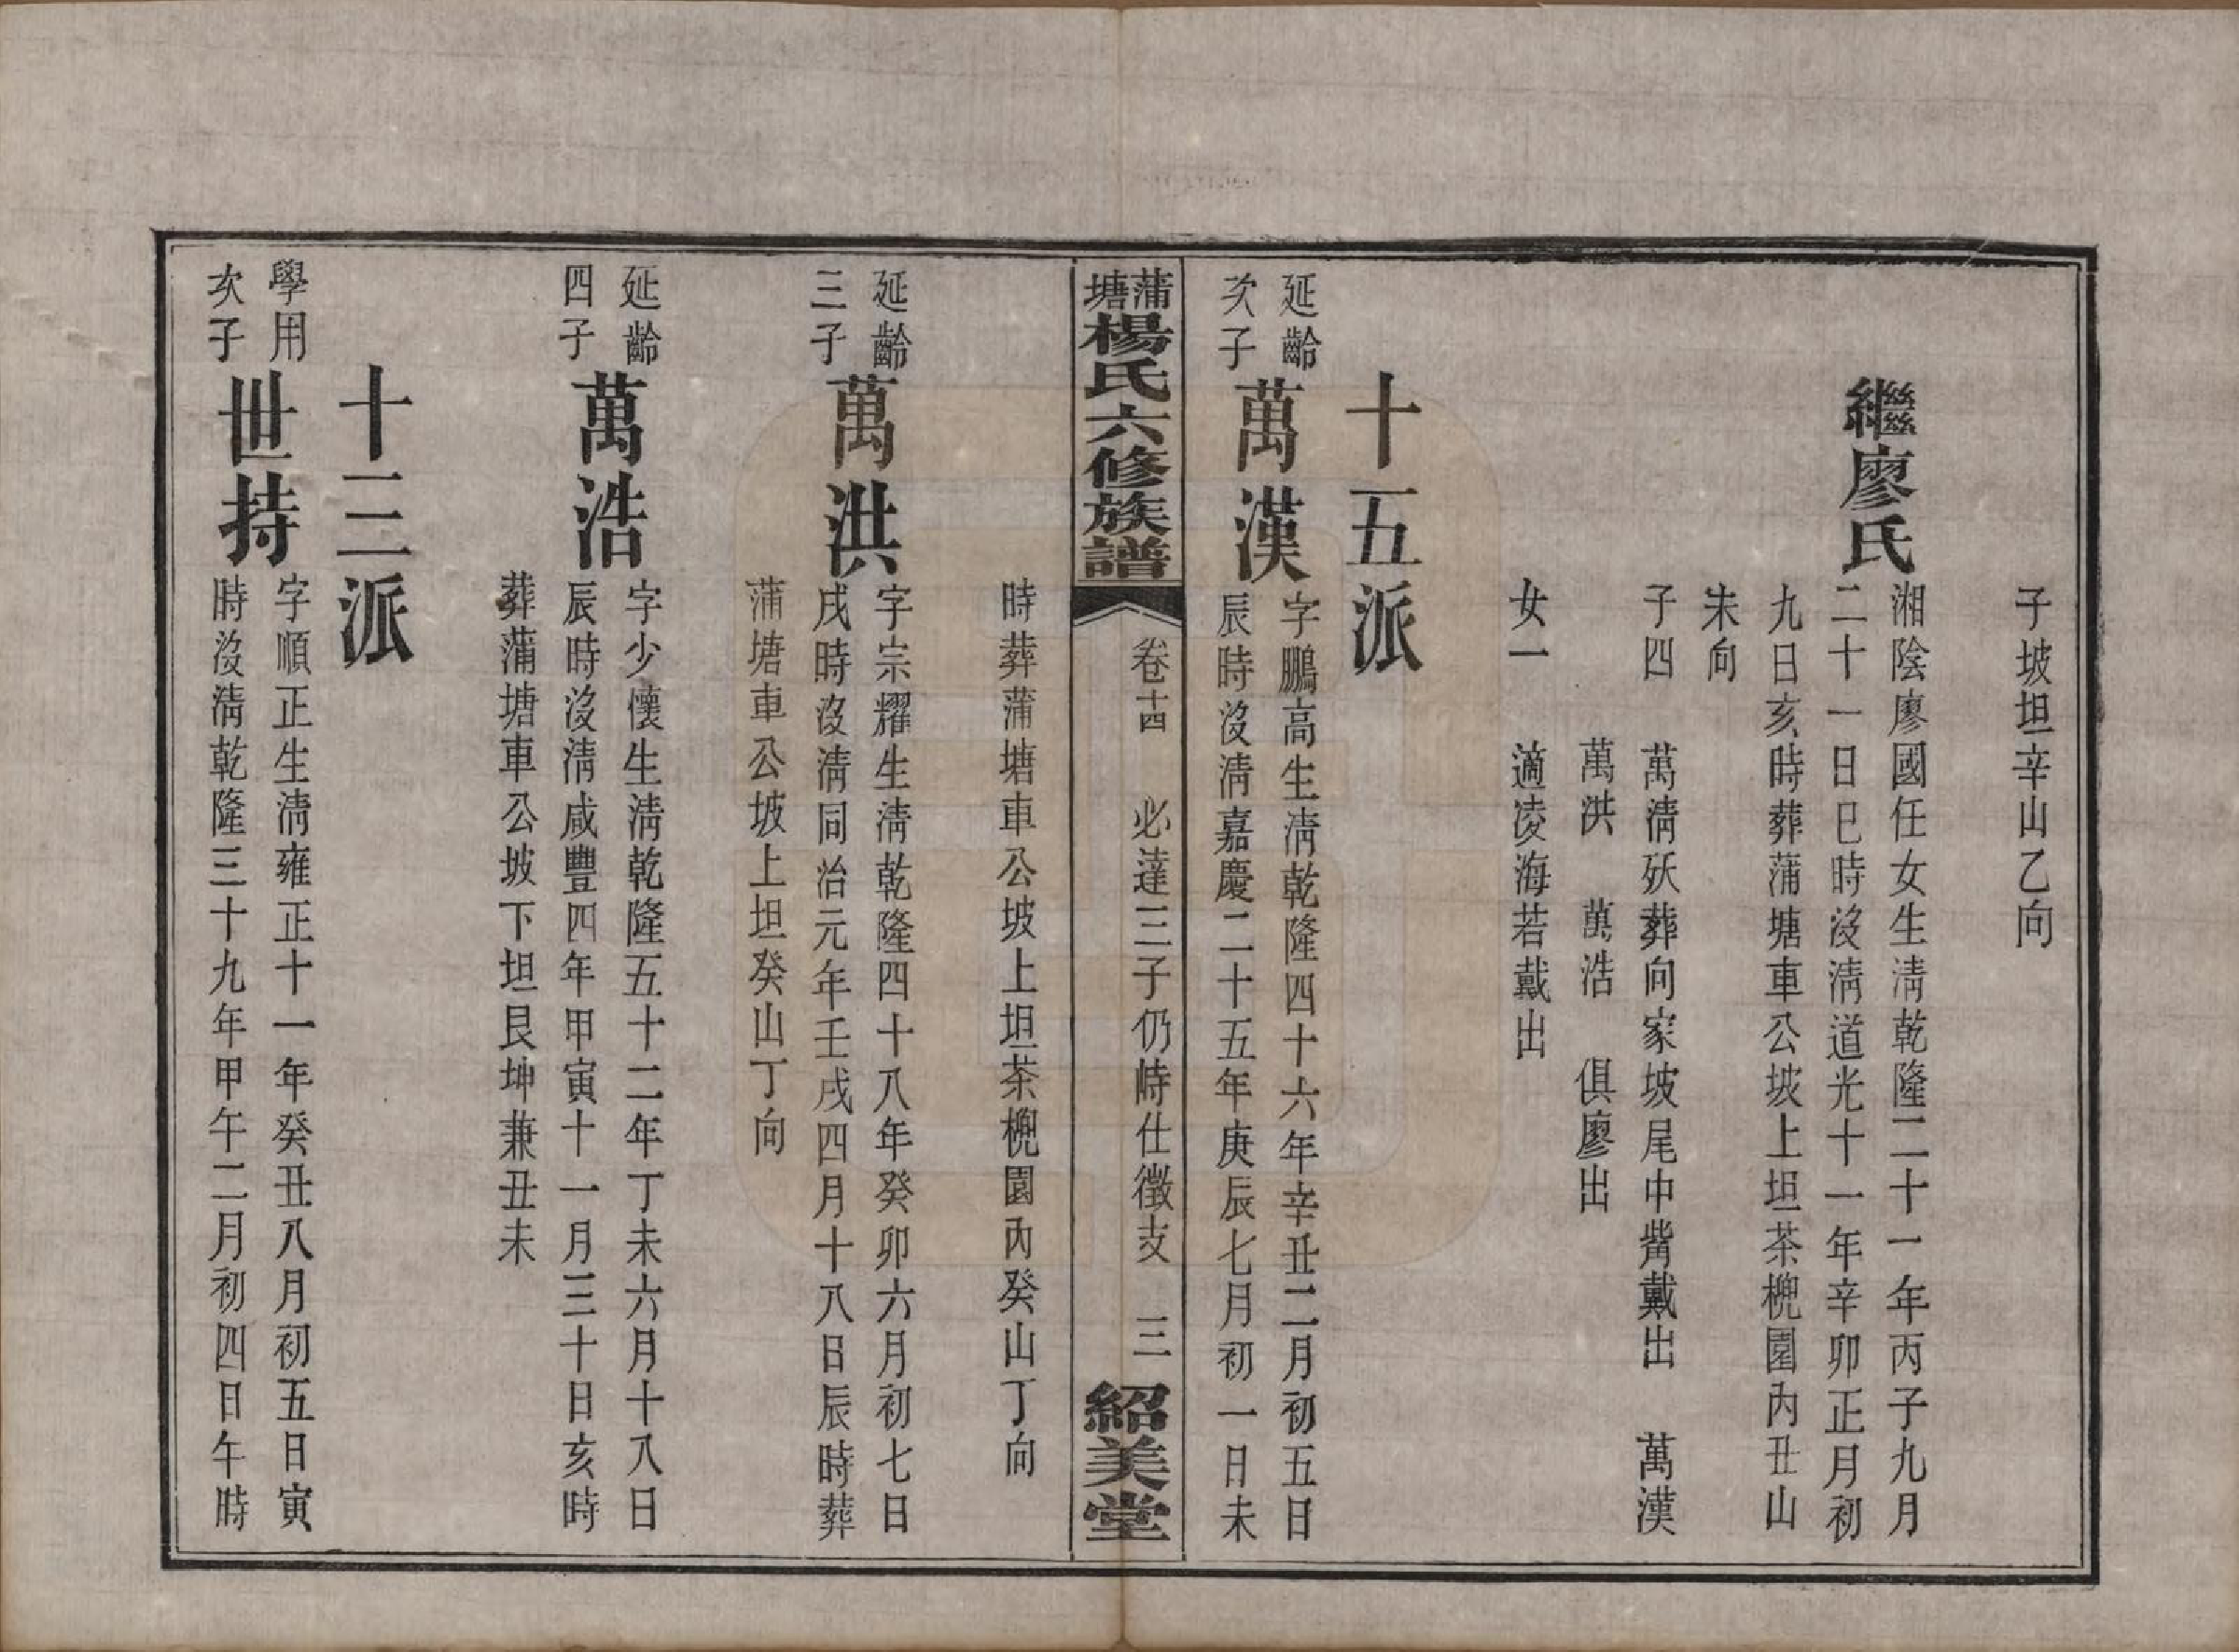 子坡坦辛山乙向
繼廖氏
湘陰廖國任女生淸乾隆二十一年丙子九月
二十一日巳時沒淸道光十一年辛卯正月初
九日亥時葬蒲塘車公坡上坦茶㮽園內丑山
未向
子四 萬淸殀葬向家坡尾中觜戴出 萬漢
萬洪 萬浩 俱廖出
女一 適淩海若戴出
十五派
延齡
次子
萬漢
字鵬高生淸乾隆四十六年辛丑二月初五日
辰時沒淸嘉慶二十五年庚辰七月初一日未
蒲塘楊氏六修族譜
卷十四 必達三子仍峙仕徵支 三
紹美堂
時葬蒲塘車公坡上坦茶㮽園內癸山丁向
延齡
三子
萬洪
字宗耀生淸乾隆四十八年癸卯六月初七日
戌時沒淸同治元年壬戌四月十八日辰時葬
蒲塘車公坡上坦癸山丁向
延齡
四子
萬浩
字少懷生淸乾隆五十二年丁未六月十八日
辰時沒淸咸豐四年甲寅十一月三十日亥時
葬蒲塘車公坡下坦艮坤兼丑未
十三派
學用
次子
世持
字順正生淸雍正十一年癸丑八月初五日寅
時沒淸乾隆三十九年甲午二月初四日午時